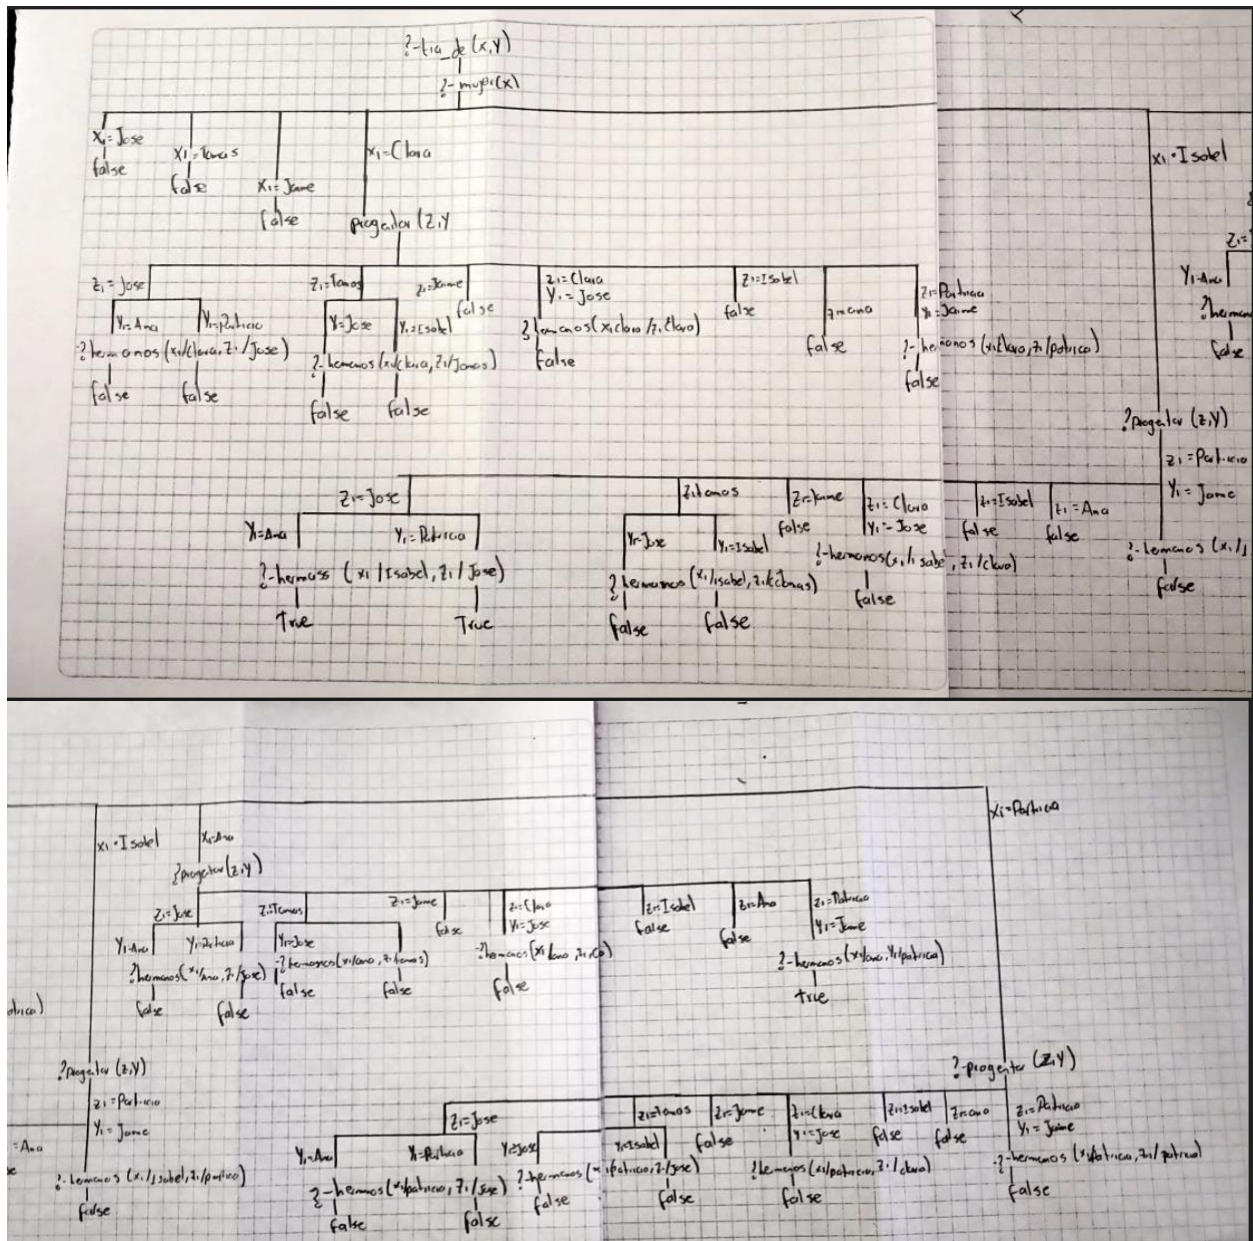 ?-tia_de(x,y)
?-mujer(x)
x₁=Jose
false
x₁=Tomas
false
x₁=Jaime
false
x₁=Clara
progenitor(z,y
x₁=Isabel
z₁=Jose
y₁=Ana
y₁=Patricia
?hermanos(x₁/Clara,z₁/Jose)
false
false
z₁=Tomas
y₁=Jose
y₁=Isabel
?-hermanos(x₁/Clara,z₁/Tomas)
false
false
z₁=Jaime
false
z₁=Clara
y₁=Jose
?hermanos(x₁clara/z₁Clara)
false
z₁=Isabel
false
z₁=ana
false
z₁=Patricia
y₁=Jaime
?-hermanos(x₁Clara,z₁/patricia)
false
z₁=
y₁=Ana
?hermano
false
?progenitor(z,y)
z₁=Patricia
y₁=Jaime
?-hermanos(x₁/
false
z₁=Jose
y₁=Ana
y₁=Patricia
?-hermanos(x₁/Isabel,z₁/Jose)
True
True
z₁Tomas
y₁=Jose
y₁=Isabel
?hermanos(x₁/isabel,z₁/Tomas)
false
false
z₁=Jaime
false
z₁=Clara
y₁=Jose
?-hermanos(x₁/isabel,z₁/clara)
false
z₁=Isabel
false
z₁=Ana
false
x₁=Isabel
x₁=Ana
?progenitor(z,y)
x₁=Patricia
z₁=Jose
y₁=Ana
y₁=Patricia
?hermanos(x₁/Ana,z₁/jose)
false
false
z₁=Tomas
y₁=Jose
-?hermanos(x₁/ana,z₁tomas)
false
false
z₁=Jaime
false
z₁=Clara
y₁=Jose
-?hermanos(x₁/ana,z₁
false
z₁=Isabel
false
z₁=Ana
false
z₁=Patricia
y₁=Jaime
?-hermanos(x₁/ana,y₁/patricia)
true
?progenitor(z,y)
z₁=Patricia
y₁=Jaime
=Ana
?-hermanos(x₁/isabel,z₁/patricia)
false
?-progenitor(z,y)
z₁=Jose
y₁=Ana
y₁=Patricia
?-hermanos(x₁/patricia,z₁/jose)
false
false
z₁=Tomas
y₁=Jose
y₁=Isabel
?-hermanos(x₁/patricia,z₁/jose)
false
false
z₁=Jaime
false
z₁=Clara
y₁=Jose
?hermanos(x₁/patricia,z₁/clara)
false
z₁=Isabel
false
z₁=ana
false
z₁=Patricia
y₁=Jaime
-?-hermanos(x₁/patricia,z₁/patricia)
false